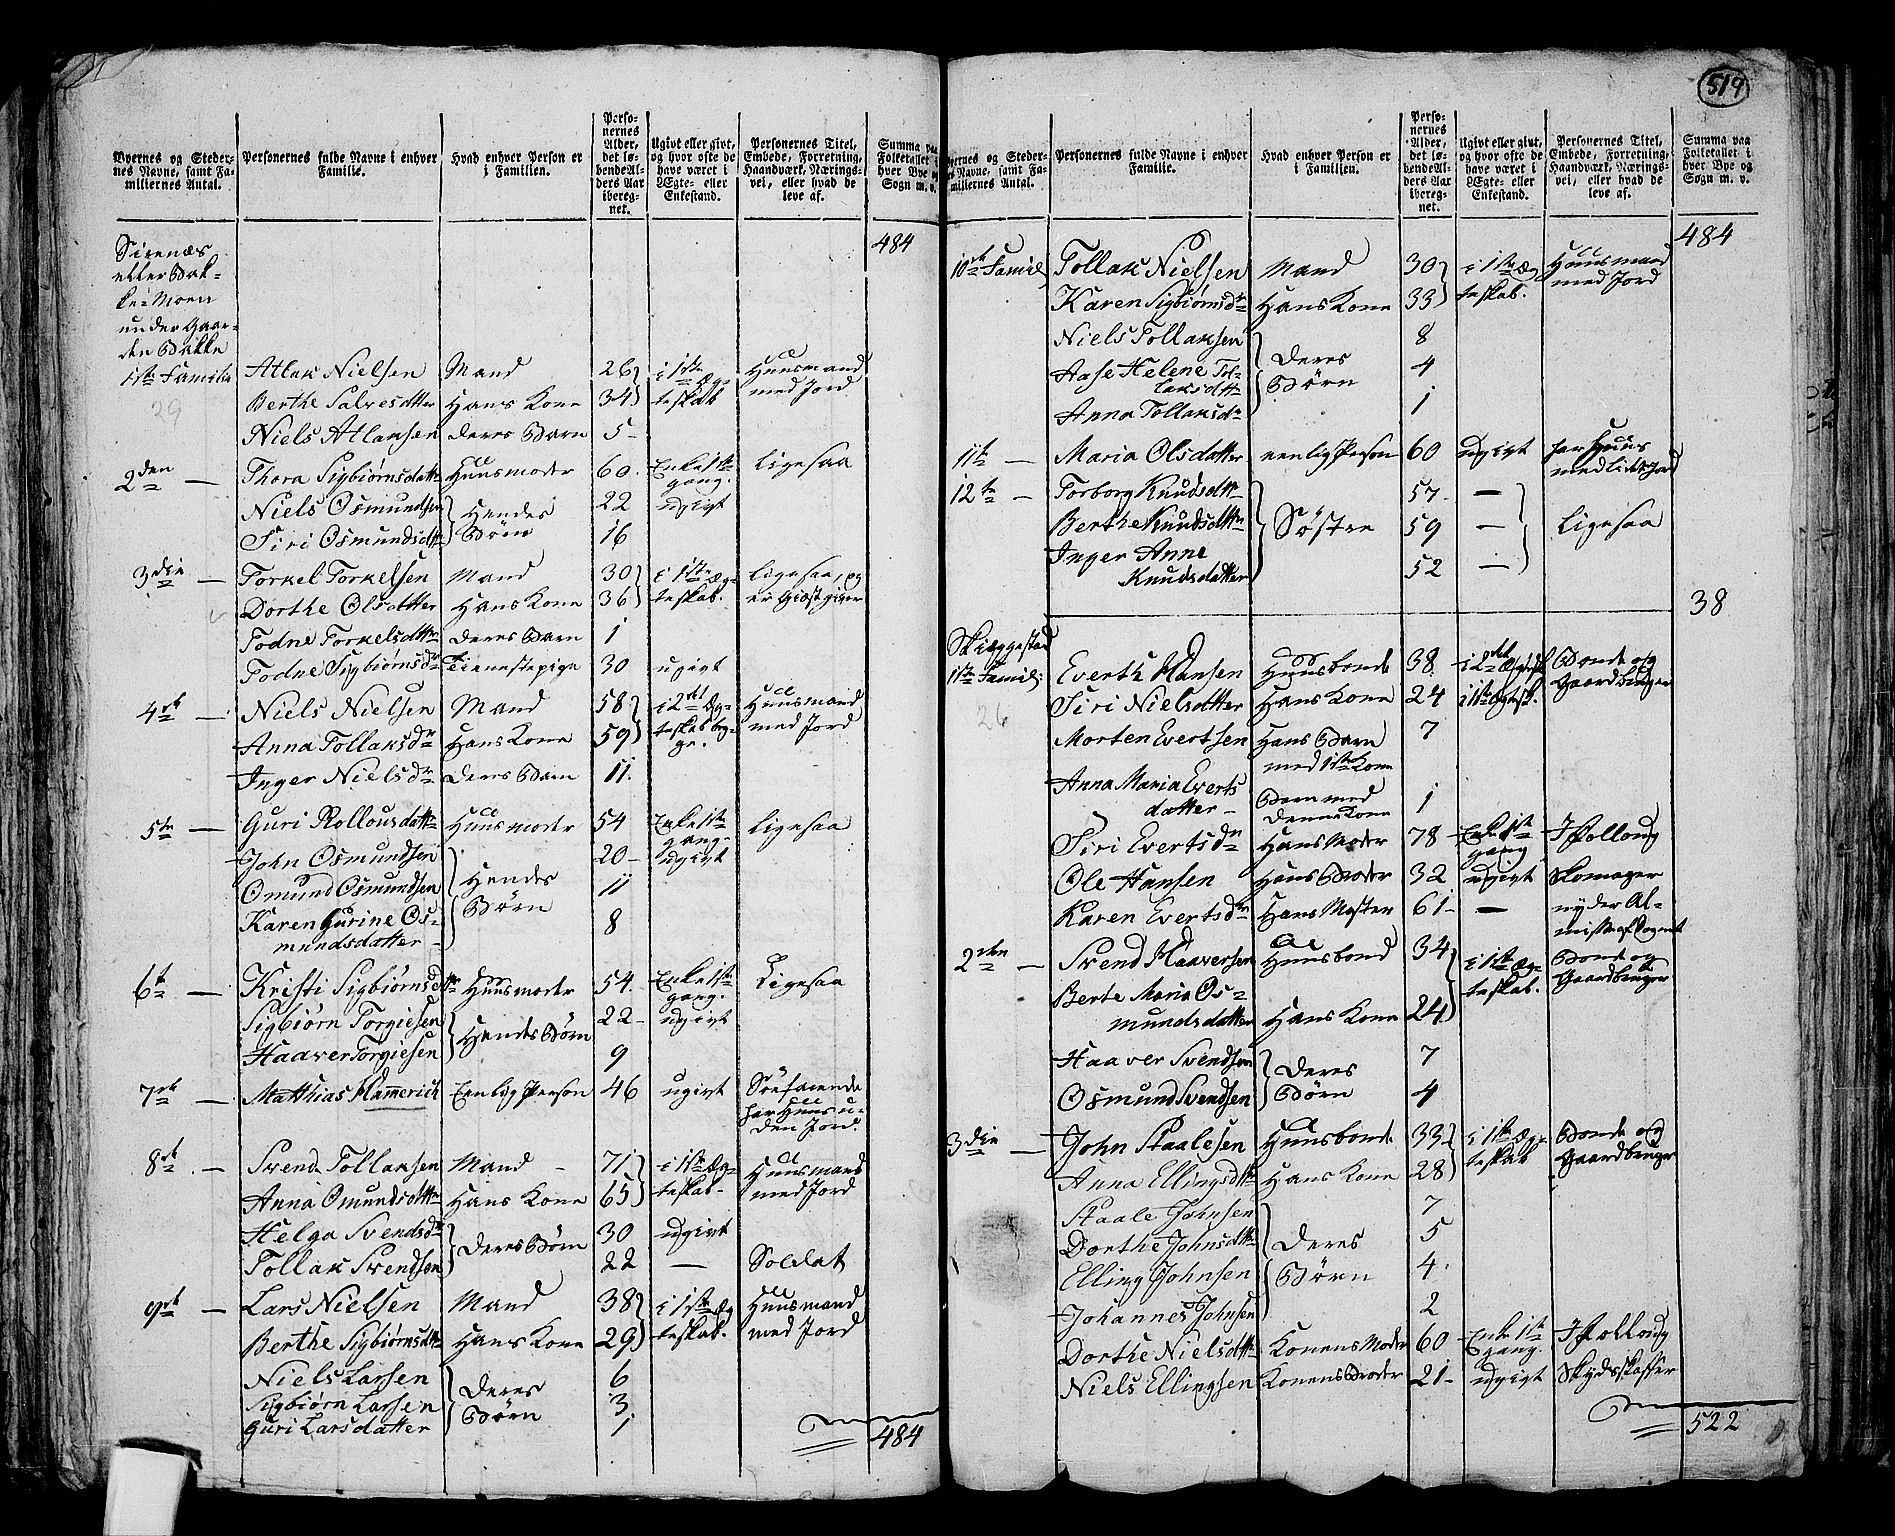 519
Byernes og Steder-
nes Navne, samt Fa-
miliernes Antal.
Personernes fulde Navne i enhver
Familie.
Hvad enhver Person er
i Familien.
Perso-
nernes
Alder,
det lø-
bende Al-
ders Aar
ibereg-
net.
Ugivt eller givt,
og hvor ofte de
have været i
Ægte- eller
Enkestand.
Personernes Titel,
Embede, Forretning,
Haandværk, Nærings-
vei, eller hvad de
leve af.
Summa paa
Folketallet i
hver Bye og
Sogn m. v.
484
Sirenæs
eller Bak-
ke-Moen
under Gaar-
den Bakke
1ste Familie Atlak Nielsen Mand 26 i 1ste Æg- Huusmand
29 Berthe Salvesdatter Hans Kone 34 teskab med Jord
Niels Atlaksen deres Barn 5
2den Thora Sigbiørnsdattr Huusmoder 60 Enke 1ste gang. ligesaa
Niels Osmundsen Hendes 22 ugivt
Siri Osmundsdattr Børn 16
3die Torkel Torkelsen Mand 30 i 1ste Æg- ligesaa, og
Dorthe Olsdatter Hans Kone 36 teskab. er Giæstgiver
Todne Torkelsdattr deres Barn 1
Todne Sigbiørnsdr Tienestepige 30 ugivt
4de Niels Nielsen Mand 58 i 2det Æg- Huusmand
Anna Tollaksdr Hans Kone 59 teskab beg- ge. med Jord
Inger Nielsdr deres Barn 11
5te Guri Rollousdattr Huusmoder 54 Enke 1ste gang ligesaa
John Osmundsen Hendes 20 ugivt
Omund Osmundsen Børn 11
Karen Gurine Os-
mundsdatter 8
6te Kristi Sigbiørnsdtr Huusmoder 54 Enke 1ste gang. Ligesaa
Sigbiørn Torgiesen Hendes Børn 22 ugivt
Haaver Torgiesen 9
7de Matthias Hammerich Eenlig Person 46 ugivt Søefarende
har Huus u-
den Jord.
8de Svend Tollaksen Mand 71 i 1ste Æg- Huusmand
Anna Omundsdattr Hans Kone 65 teskab med Jord
Helga Svendsdr deres Børn 30 ugivt
Tollak Svendsen 22 — Soldat
9de Lars Nielsen Mand 38 i 1ste Æg Huusmand
Berthe Sigbiørnsdtr Hans Kone 29 teskab. med Jord
Niels Larsen Deres 6
Sigbiørn Larsen Børn 3
Guri Larsdatter 1
484
Byernes og Steder-
nes Navne, samt Fa-
miliernes Antal.
Personernes fulde Navne i enhver
Familie.
Hvad enhver Person er
i Familien.
Perso-
nernes
Alder,
det lø-
bende Al-
ders Aar
ibereg-
net.
Ugivt eller givt,
og hvor ofte de
have været i
Ægte- eller
Enkestand.
Personernes Titel,
Embede, Forretning,
Haandværk, Nærings-
vei, eller hvad de
leve af.
Summa paa
Folketallet i
hver Bye og
Sogn m. v.
484
10de Famil Tollak Nielsen Mand 30 i 1ste Æg Huusmand
Karen Sigbiørnsdr Hans Kone 33 teskab. med Jord
Niels Tollaksen Deres 8
Aase Helene Tol-
laksdtr Børn 4
Anna Tollaksdr 1
11te Maria Olsdatter eenlig Person 60 ugivt har Huus
med lidt Jord
12te Torborg Knudsdtr 57 —
Berthe Knudsdttr Søstre 59 — ligesaa
Inger Anne
Knudsdatter 52 —
38
Skieggestad
1ste Famili Everth Hansen Huusbonde 38 i 2det Bonde og
Gaardbruger
26 Siri Nielsdatter Hans Kone 24 i 1ste
Morten Evertsen Hans Barn 7
med 1ste Kone
Anna Maria Everts
datter Barn med 1
Denne Kone
Siri Evertsdr Hans Moder 78 Enke 1ste gang
Ole Hansen Hans Broder 32 ugivt Skomager
Karen Evertsdr Hans Moster 61 — nyder Al-
misse af Sognet
2den Svend Haaversen Huusbond 34 i 1ste Æg- Bonde og
teskab. Gaardbruger
Berte Maria Os-
mundsdatter Hans Kone 24
Haaver Svendsen Deres 7
Osmund Svendsen Børn 4
3die John Staalesen Huusbonde 33 i 1ste Æg- Bonde og
Anna Ellingsdtr Hans Kone 28 teskab Gaardbruger
Staale Johnsen 7
Dorthe Johnsdtr Deres 5
Elling Johnsen Børn 4
Johannes Johnsen 2
Dorthe Nielsdtr Konens Moder 60 Enke 1ste gang.
Niels Ellingsen Konens Broder 21 ugivt Skydsskaffer
522